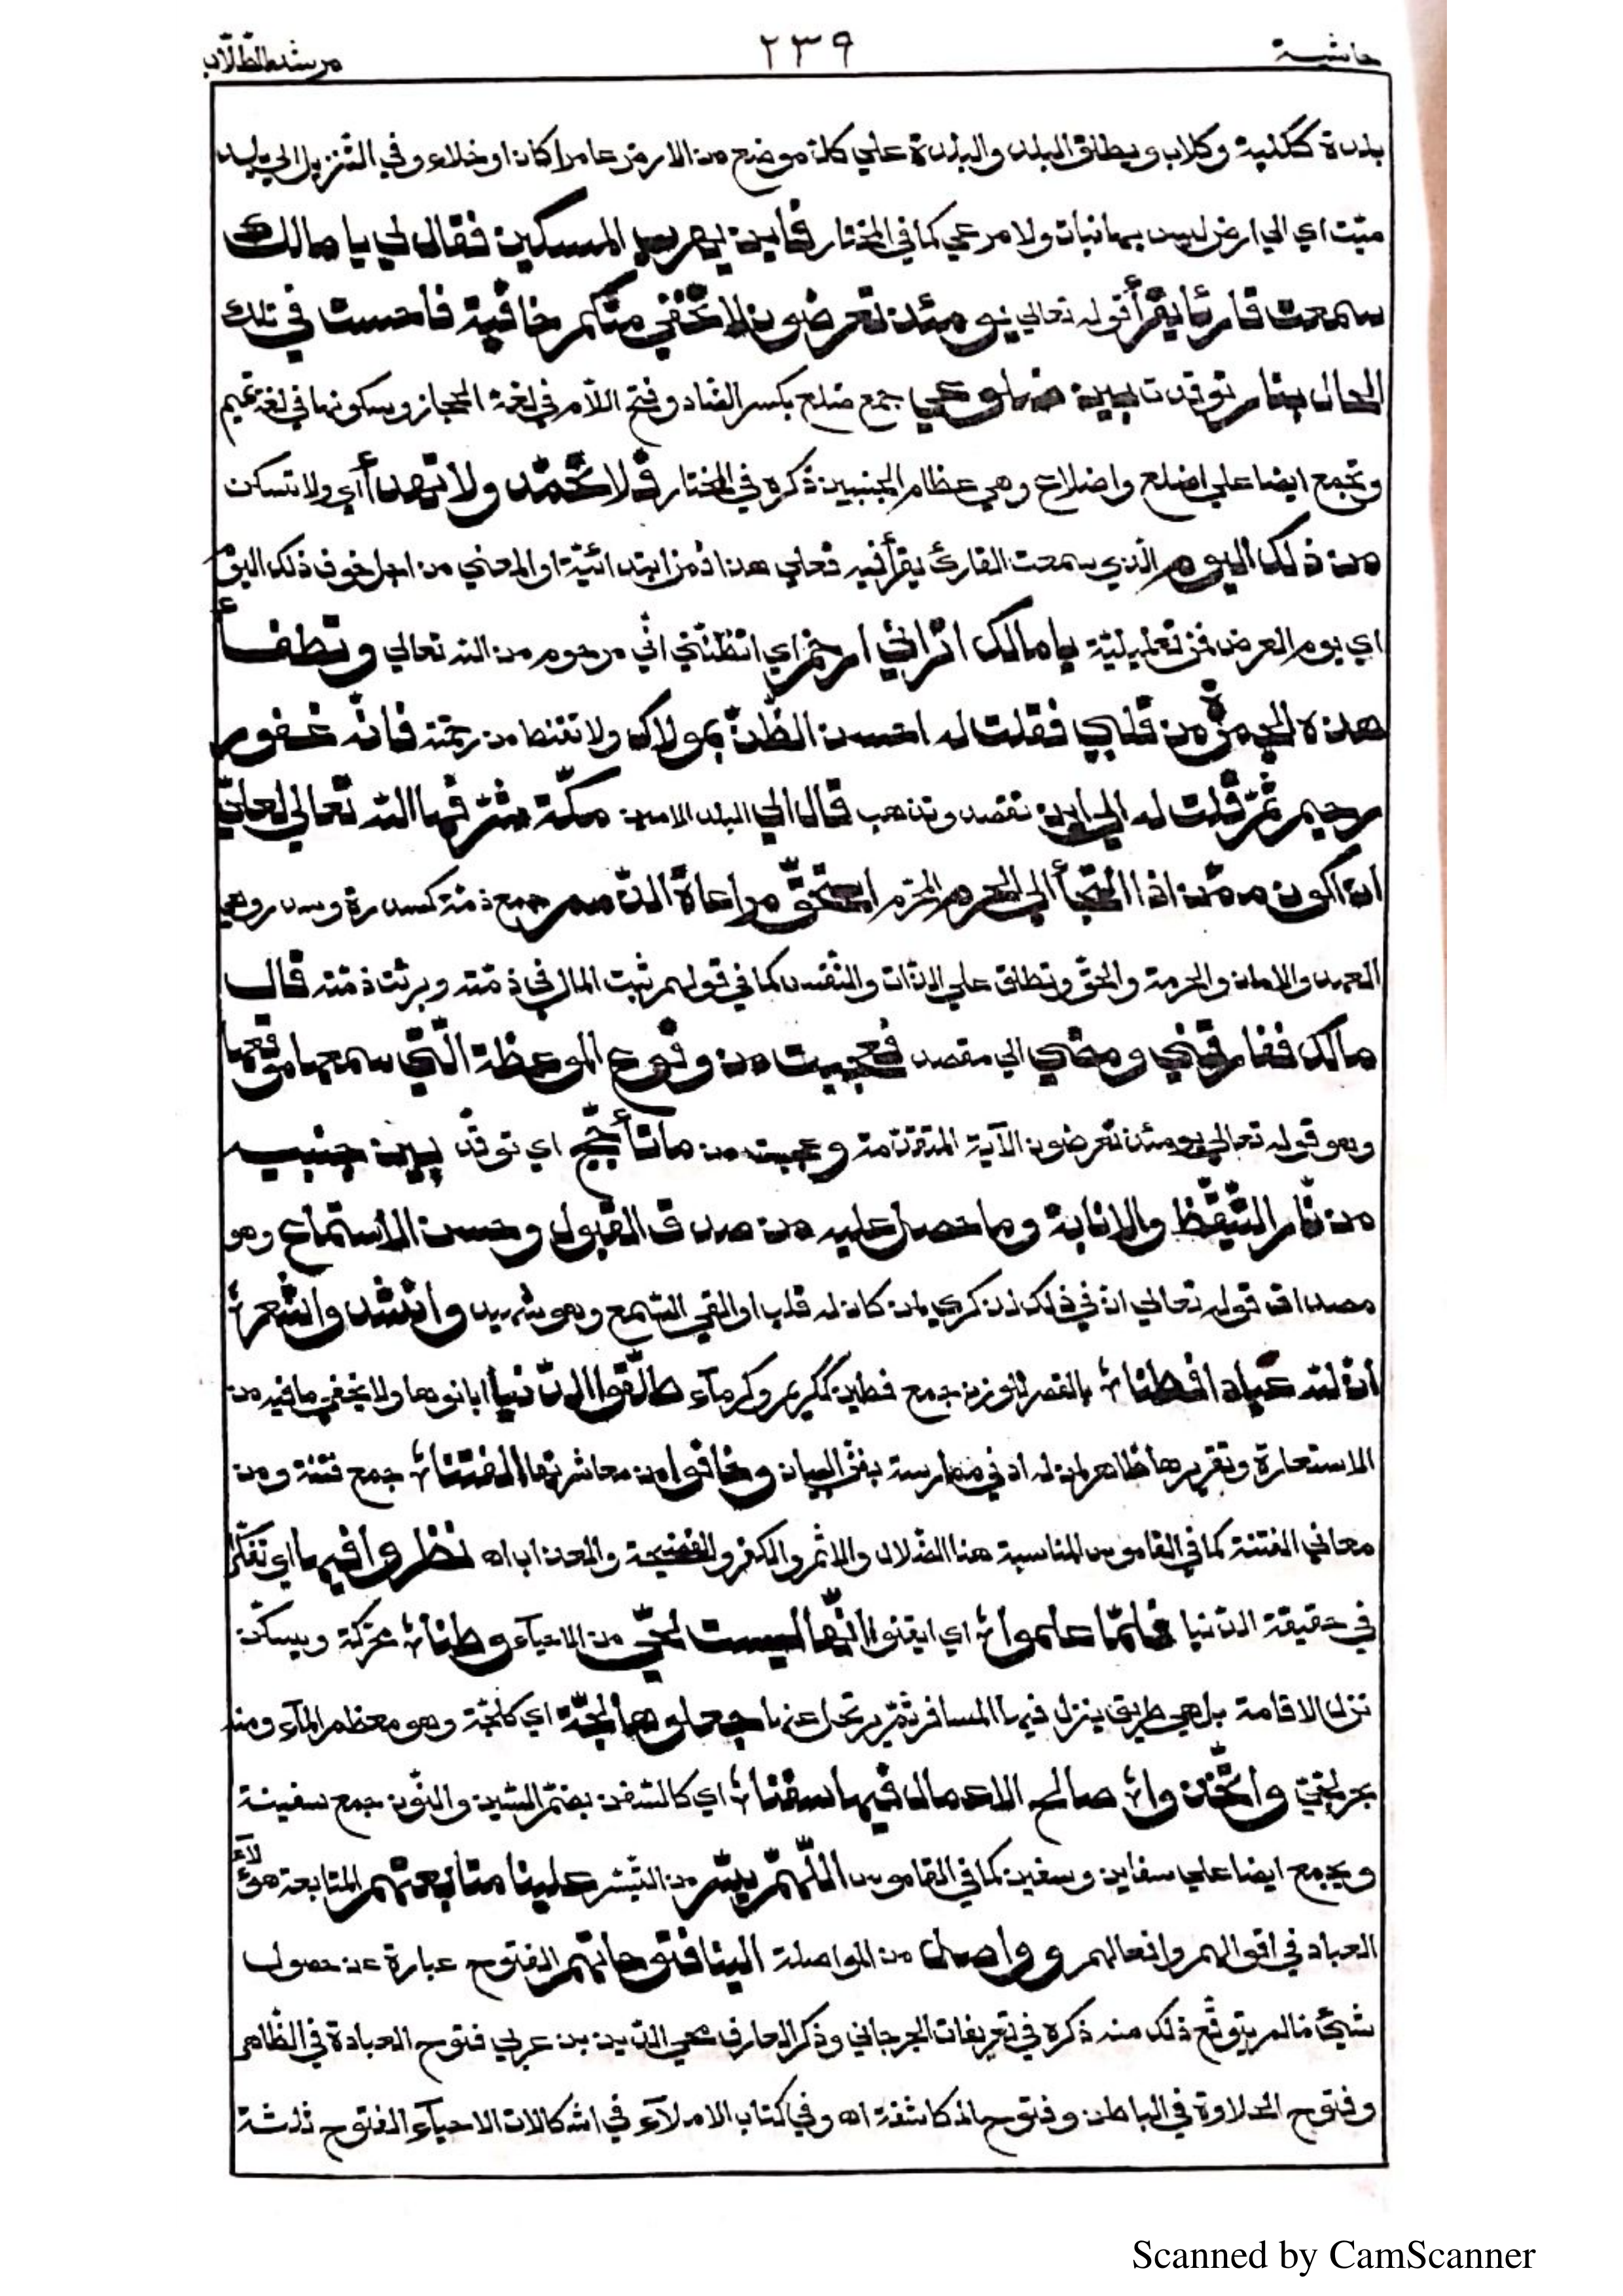 حاشية ٢٣٩ مرشد الطّلّاب
بلدة ككلبة وكلاب ويطلق البلد والبلدة علي كلّ موضع من الارض عامرا كان او خلاء وفي التّنزيل الي بلد
ميّت اي الي ارض ليس بها نبات ولا مرعي كما في المختار فاين يهرب المسكين فقال لي يا مالك
سمعت قارئا يقرأ قوله تعالي يومئذ تعرضون لا تخفي منكم خافية فاحسست في تلك
الحال بنار توقدت بين ضلوعي جمع ضلع بكسر الضاد وفتح اللّام في لغة الحجاز وسكونها في لغة تميم
وتجمع ايضا علي اضلع واضلاع وهي عظام الجنبين ذكره في المختار فلا تخمد ولا تهدأ اي ولا تسكن
من ذلك اليوم الّذي سمعت القارئ يقرأ فيه فعلي هذا فمن ابتدائيّة او المعني من اجل خوف ذلك اليوم
اي يوم العرض فمن تعليليّة يا مالك اتراني ارحم اي اتظنّني انّي مرحوم من اللّه تعالي وتطفأ
هذه الجمرة من قلبي فقلت له احسن الظّنّ بمولاك ولا تقنط من رحمته فانّه غفور
رحيم ثمّ قلت له الي اين تقصد وتذهب قال الي البلد الامين مكّة شرّفها اللّه تعالي لعلّي
ان اكون ممّن اذا التجأ الي الحرم المحترم استحقّ مراعاة الذّمم جمع ذمّة كسدرة وسدر وهي
العهد والامان والحرمة والحقّ وتطلق علي الذّات والنّفس كما في قولهم ثبت المال في ذمّته وبرئت ذمّته قال
مالك ففارقني ومضي الي مقصده فعجبت من وقوع الموعظة الّتي سمعها موقعها
وهو قوله تعالي يومئذ تعرضون الآية المتقدّمة وعجبت من ما تأجّج اي توقّد بين جنبيه
من نار التّيقّظ والانابة وما حصل عليه من صدق القبول وحسن الاستماع وهو
مصداق قوله تعالي انّ في ذلك لذكري لمن كان له قلب او القي السّمع وهو شهيد وانشد والشعر
انّ للّه عبادا فطنا بالقصر للوزن جمع فطين ككريم وكرمآء طلّقوا الدّنيا ابانوها ولا يخفي ما فيه من
الاستعارة وتقريرها ظاهر لمن له ادني ممارسة بفنّ البيان وخافوا من معاشرتها الفتنا جمع فتنة ومن
معاني الفتنة كما في القاموس المناسبة هنا الضّلال والاثم والكفر والفضيحة والعذاب اه نظروا فيها اي تفكّروا
في حقيقة الدّنيا فلمّا علموا اي ايقنوا انّها ليست لحيّ من الاحيآء وطنا محرّكة ويسكّن
نزل الاقامة بل هي طريق ينزل فيها المسافر ثمّ يرتحل عنها جعلوها لجّة اي كلجّة وهو معظم المآء ومنه
بحر لجّيّ واتّخذوا صالح الاعمال فيها سفنا اي كالسّفن بضمّ السّين والنّون جمع سفينة
ويجمع ايضا علي سفاين وسفين كما في القاموس اللّهمّ يسّر من التّيسّر علينا متابعتهم المتابعة هؤلآء
العباد في اقوالهم وافعالهم وواصل من المواصلة الينا فتوحاتهم الفتوح عبارة عن حصول
شيئ ممّا لم يتوقّع ذلك منه ذكره في تعريفات الجرجاني وذكر العارف محي الدّين بن عربي فتوح العبادة في الظّاهر
وفتوح الحلاوة في الباطن وفتوح المكاشفة اه وفي كتاب الاملآء في اشكالات الاحيآء الفتوح ثلثة
Scanned by CamScanner